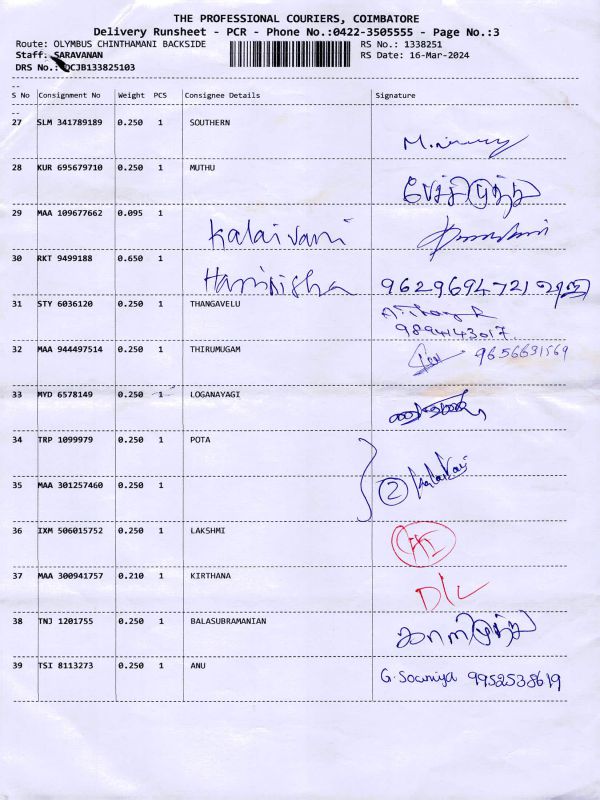 THE PROFESSIONAL COURIERS, COIMBATORE
Delivery Runsheet - PCR - Phone No.:0422-3505555 - Page No.:3
Route: OLYMBUS CHINTHAMANI BACKSIDE RS No.: 1338251
Staff: SARAVANAN RS Date: 16-Mar-2024
DRS No.: DCJB133825103
S No Consignment No Weight PCS Consignee Details Signature
27 SLM 341789189 0.250 1 SOUTHERN
28 KUR 695679710 0.250 1 MUTHU
29 MAA 109677662 0.095 1 Kalaivani
30 RKT 9499188 0.650 1 Harinisha 9629694721
31 STY 6036120 0.250 1 THANGAVELU
9894143017
32 MAA 944497514 0.250 1 THIRUMUGAM 9656631569
33 MYD 6578149 0.250 1 LOGANAYAGI
34 TRP 1099979 0.250 1 POTA
35 MAA 301257460 0.250 1 2
36 IXM 506015752 0.250 1 LAKSHMI
37 MAA 300941757 0.210 1 KIRTHANA D/L
38 TNJ 1201755 0.250 1 BALASUBRAMANIAN
39 TSI 8113273 0.250 1 ANU G. Sowniya 9952538619